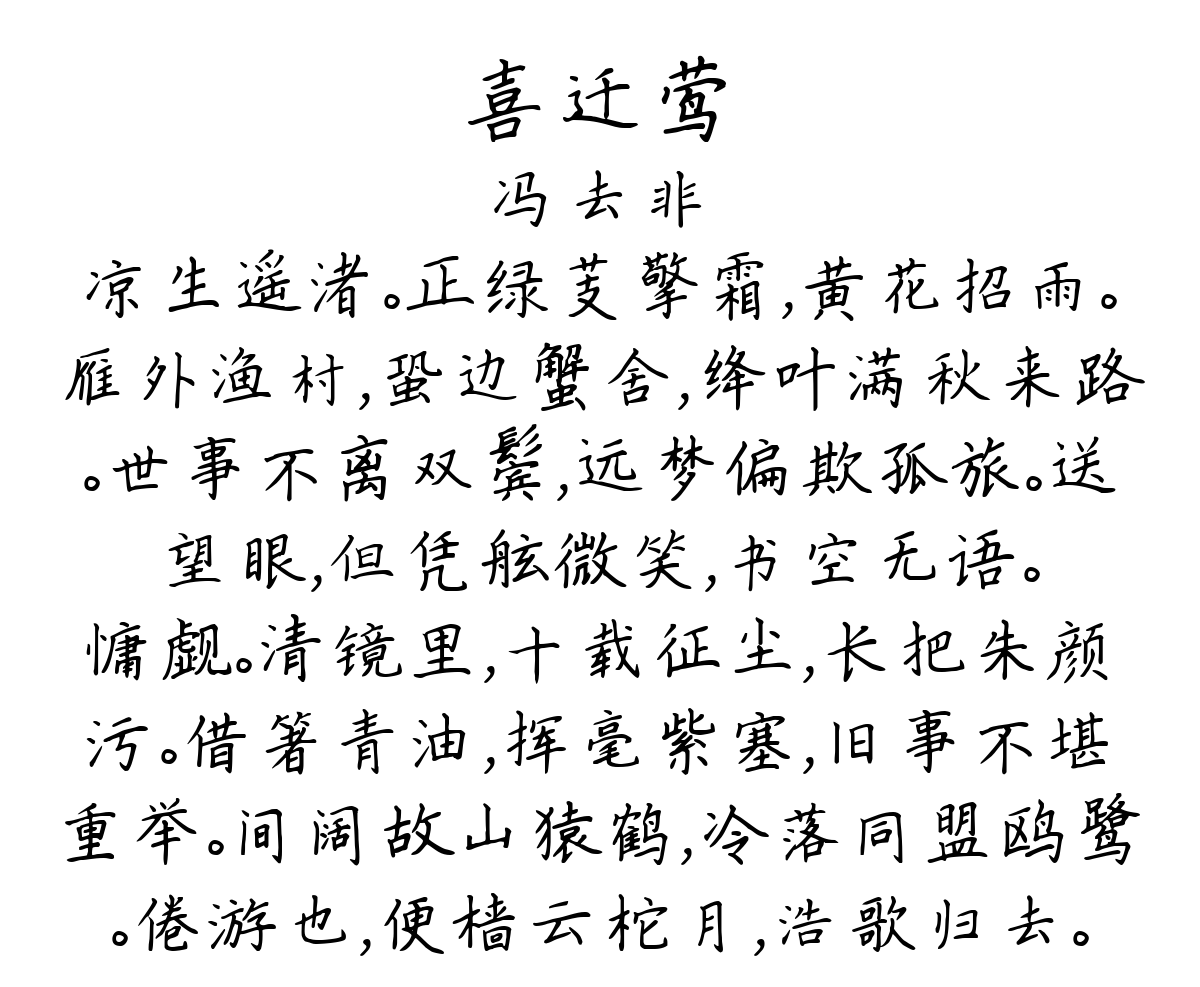 喜迁莺
冯去非
凉生遥渚。正绿芰擎霜,黄花招雨。
雁外渔村,蛩边蟹舍,绛叶满秋来路
。世事不离双鬓,远梦偏欺孤旅。送
望眼,但凭舷微笑,书空无语。
慵觑。清镜里,十载征尘,长把朱颜
污。借箸青油,挥毫紫塞,旧事不堪
重举。间阔故山猿鹤,冷落同盟鸥鹭
。倦游也,便樯云柁月,浩歌归去。